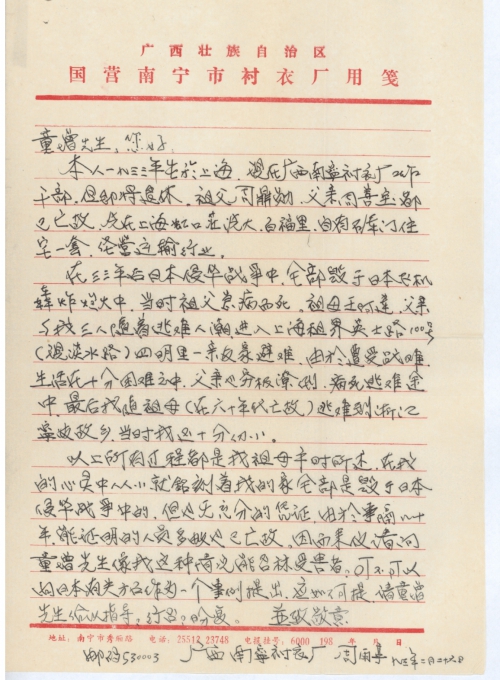 广西壮族自治区
国营南宁市衬衣厂用笺
童增先生，您好，
本人一九三三年生於上海，现在广西南宁衬衣厂工作
干部，但即将退休，祖父周鼎勋，父亲周善宝都
已亡故，先在上海虹口 百福里，自有石库门住
宅一套，经营运输行业。
在三三年后日本侵华战争中，全部毁于日本飞机
轰炸燃火中，当时祖父患病而死，祖母王阿 ，父亲
与我三人随着逃难人潮，进入上海租界英士路100号
（现淡水路）四明里一亲友家避难，由於遭受战难，
生活在十分困难之中，父亲 穷极潦倒，病死逃难途
中，最后我随祖母（在六十年代亡故）逃难到浙江
宁波故乡，当时我还十分幼小。
以上所有过程都是我祖母平时所述，在我
的心灵中从小就铭刻着我的家全部是毁于日本
侵华战争中的，但也无充分的凭证，由於事隔六十
年，能证明的人员多数也已亡故，因而来信请问
童增先生像我这种情况能否称受害者，可不可以
向日本有关方面作为一个事例提出，应如何提，请童增
先生给以指导，行否？盼复。 並致敬意
地址：南宁市秀厢路 电话：25512 23748 电报挂号：6000 198 年 月 日
邮码530003 广西南宁衬衣厂 周雨 九三年二月二十六日